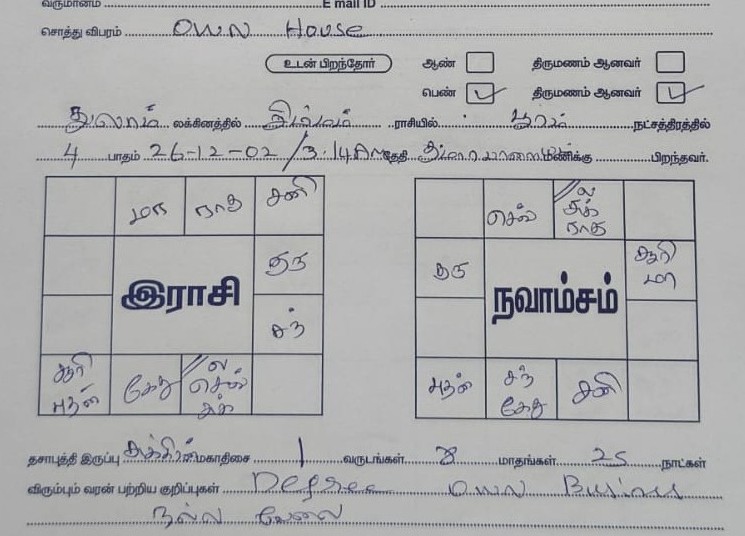 வருமானம் E mail ID
சொத்து விபரம் Own House
உடன் பிறந்தோர் ஆண் திருமணம் ஆனவர்
பெண் ✓ திருமணம் ஆனவர் ✓
துலாம் லக்கினத்தில் சிம்மம் ராசியில் பூரம் நட்சத்திரத்தில்
4 பாதம் 26-12-02 / 3.14 AM தேதி மணிக்கு பிறந்தவர்.
மா ராகு சனி
குரு
இராசி
சந்
சூரி புதன் கேது ல செவ் சுக்
செவ் ல சுக் ராகு
குரு சூரி மா
நவாம்சம்
புதன் சந் கேது சனி
தசாபுத்தி இருப்பு சுக்கிரன் மகாதிசை 1 வருடங்கள் 8 மாதங்கள் 25 நாட்கள்
விரும்பும் வரன் பற்றிய குறிப்புகள் Degree Own Business
நல்ல வேலை